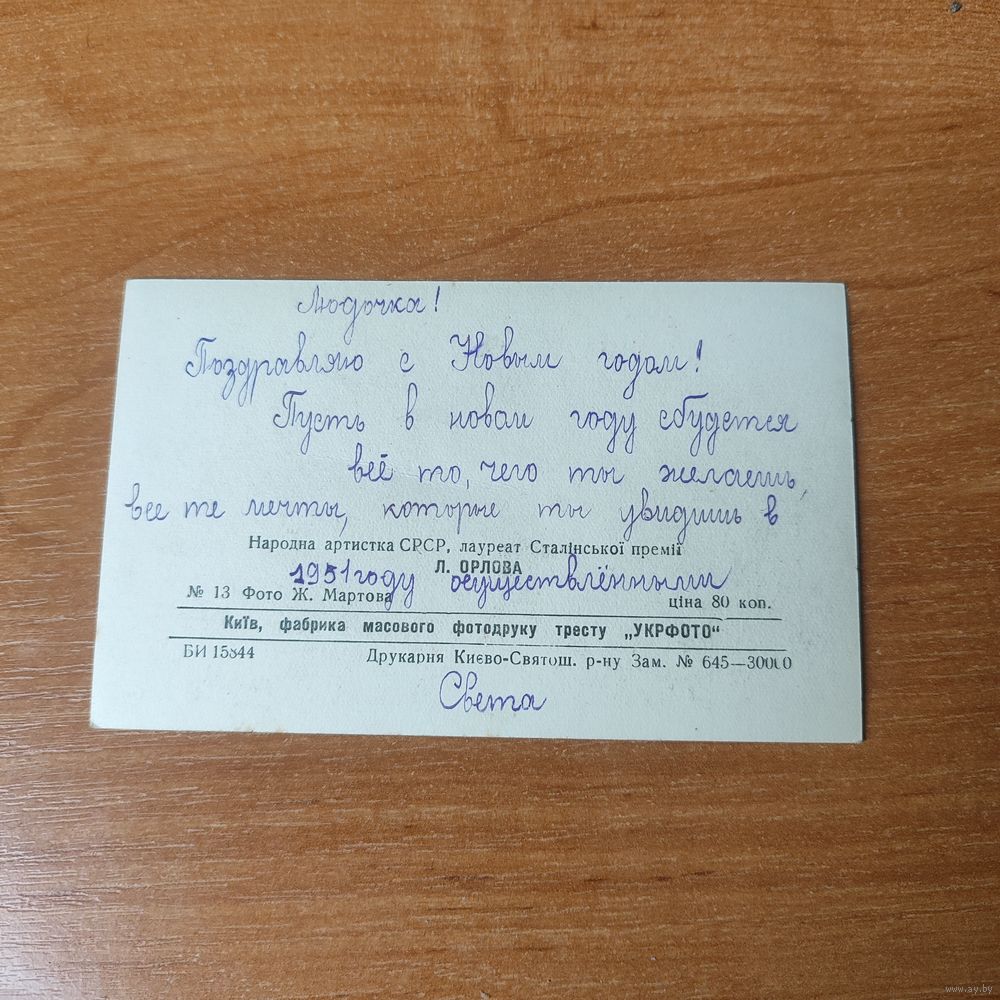 Людочка!
Поздравляю с Новым годом!
Пусть в новом году сбудется
всё то, чего ты желаешь,
все те мечты, которые ты увидишь в
Народна артистка СРСР, лауреат Сталінської премії
Л. ОРЛОВА
1951 году осуществлёнными
№ 13 Фото Ж. Мартова ціна 80 коп.
Київ, фабрика масового фотодруку тресту „УКРФОТО“
БИ 15844 Друкарня Києво-Святош. р-ну Зам. № 645—30000
Света
www.ay.by